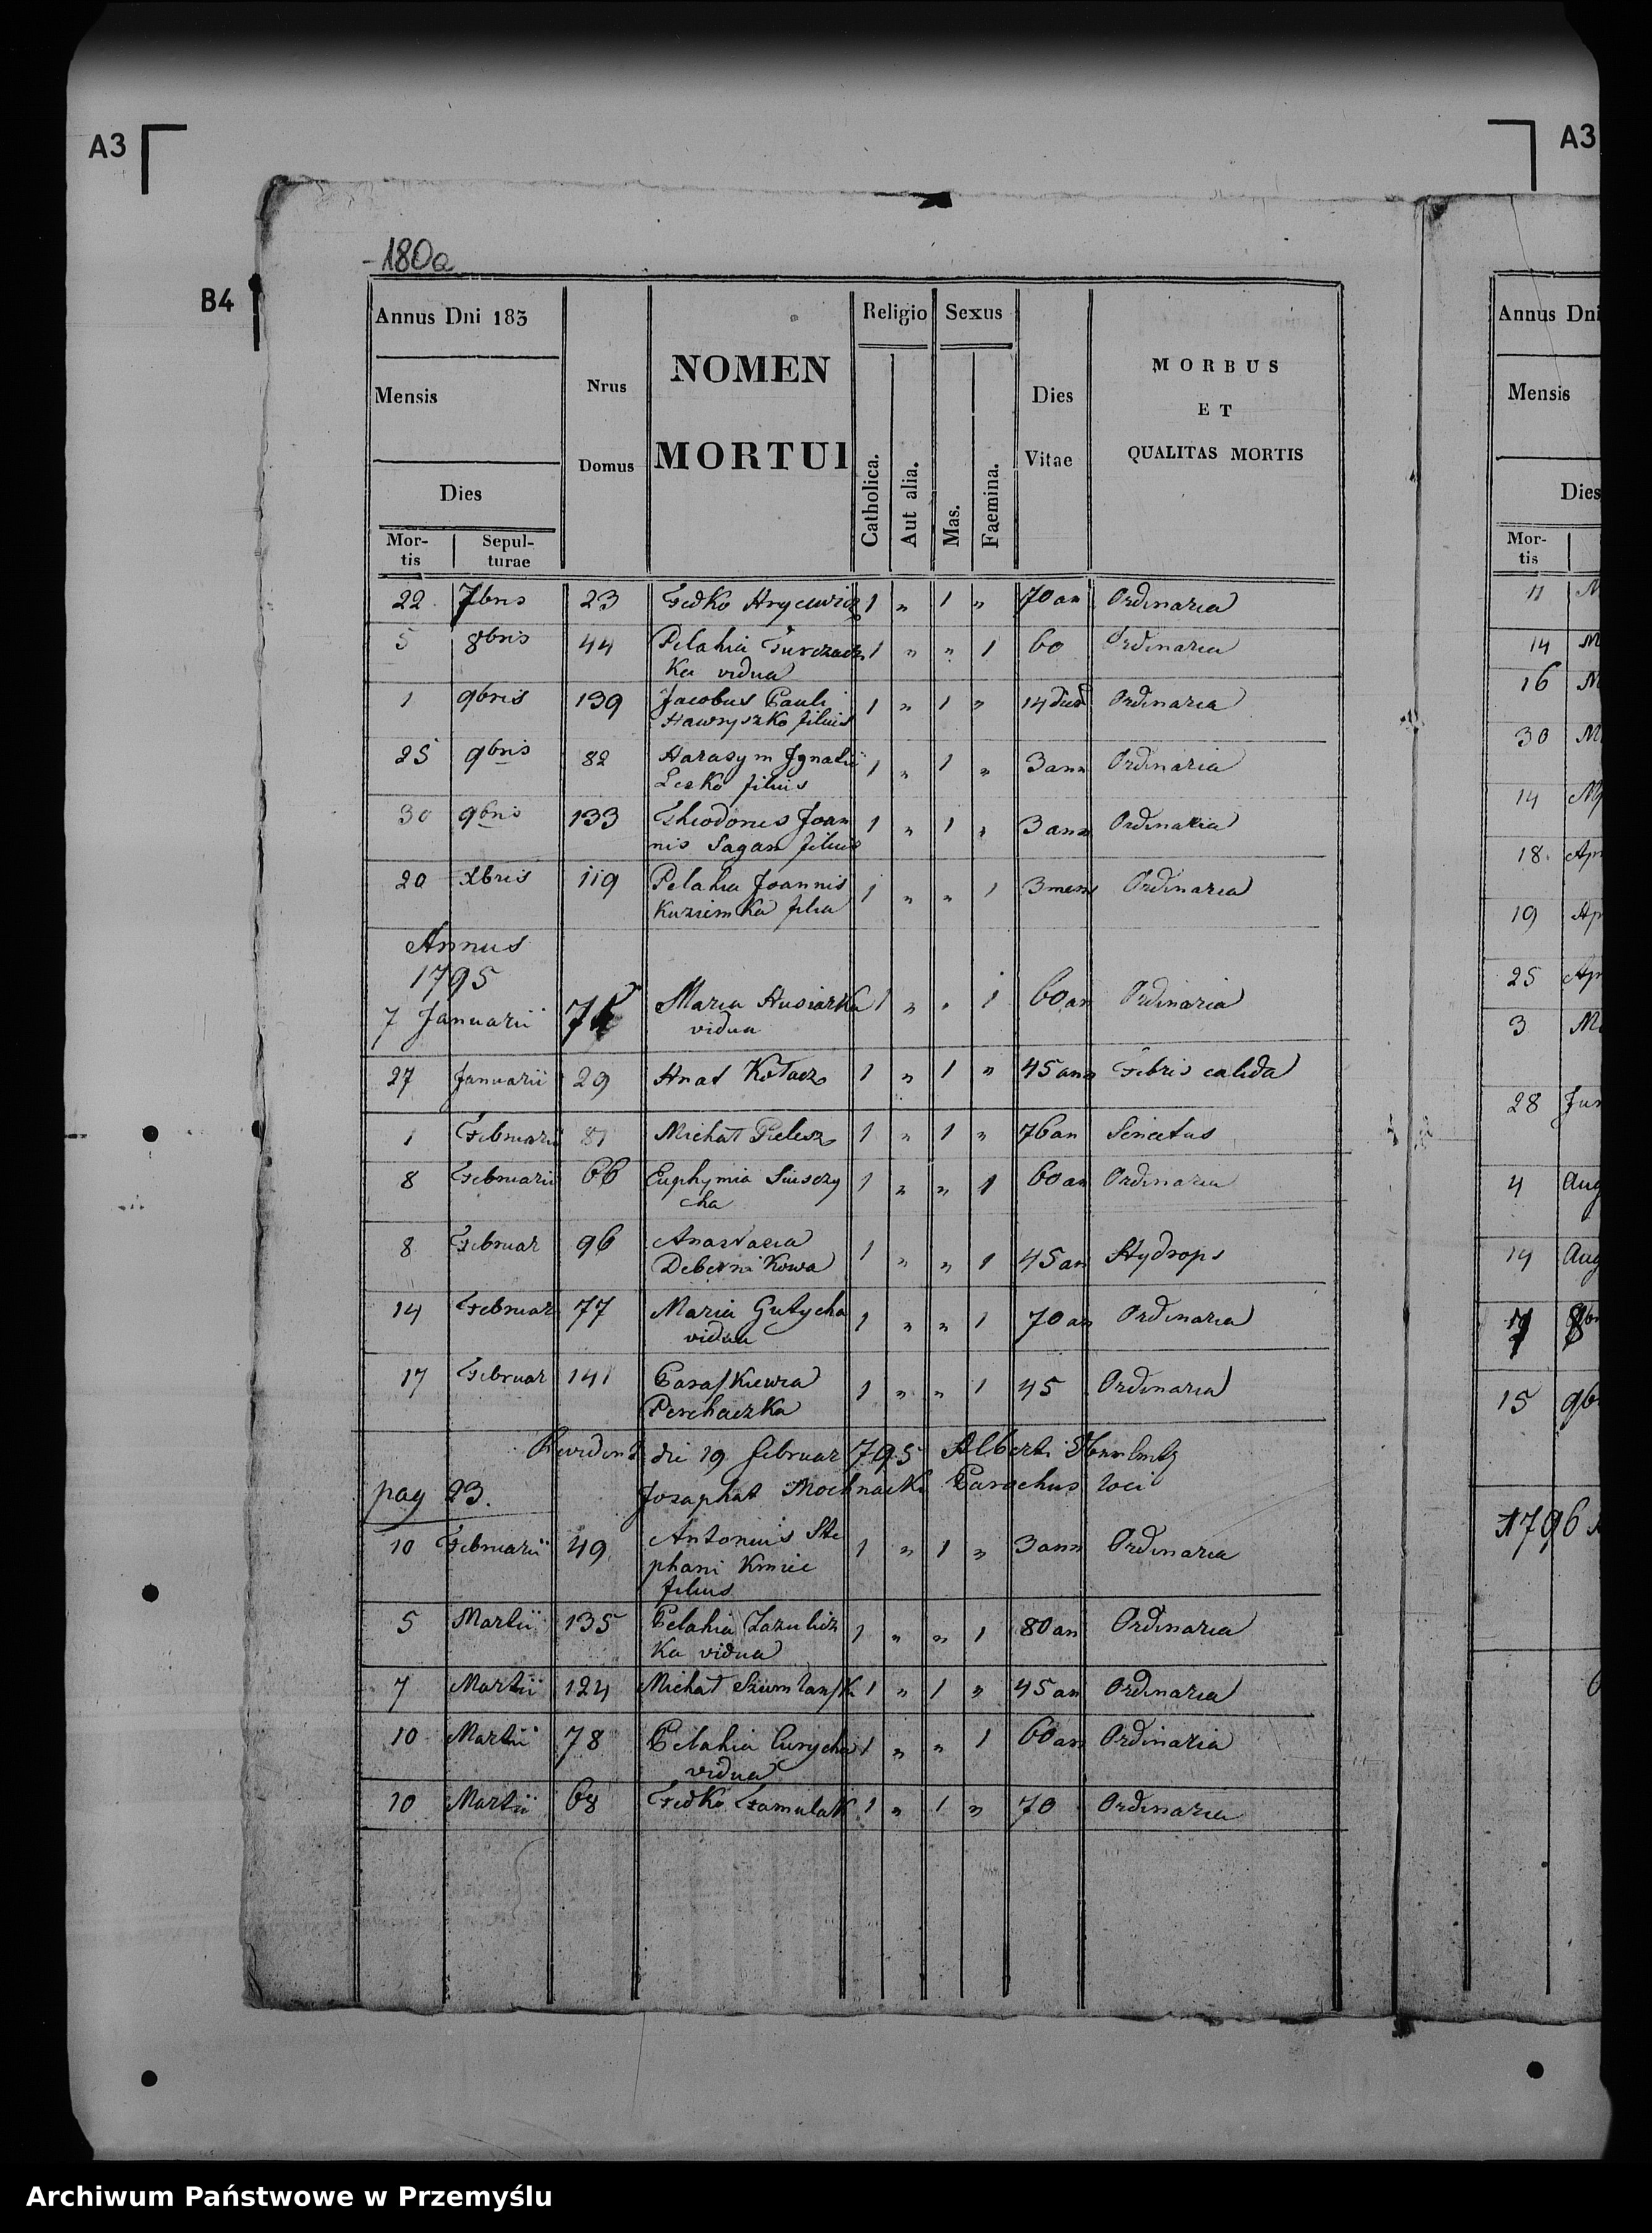 A3
A3
B4
180a
Annus Dni 183
Mensis
Dies
Mor-
tis
Sepul-
turae
Nrus
Domus
NOMEN
MORTUI
Religio
Catholica.
Aut alia.
Sexus
Mas.
Faemina.
Dies
Vitae
MORBUS
ET
QUALITAS MORTIS
22 7bris 23 Fedko 1 „ 1 „ 70 an Ordinaria
5 8bris 44 Pelahia 1 „ „ 1 60 Ordinaria
ka vidua
1 9bris 139 Jacobus Pauli 1 „ 1 „ 14 Ordinaria
Hawryszko filius
25 9bris 82 Harasym Ignatii 1 „ 1 „ 3 ann Ordinaria
Lesko filius
30 9bris 133 Joan 1 „ 1 „ 3 ann Ordinaria
nis Sagan filius
20 Xbris 119 Pelahia Joannis 1 „ „ 1 3 mens Ordinaria
Kuziemka filia
Annus
1795
7 Januarii Maria Husiarka 1 „ „ 1 60 an Ordinaria
vidua
27 Januarii 29 Hnat Kołacz 1 „ 1 „ 45 ann Febris calida
1 Februarii 81 Michał Pelesz 1 „ 1 „ 76 an Senectus
8 Februarii 66 Euphymia 1 „ „ 1 60 an Ordinaria
cha
8 Februar 96 Anastasia 1 „ „ 1 45 an Hydrops
14 Februar 77 Maria Gutycha 1 „ „ 1 70 an Ordinaria
vidua
17 Februar 141 Paraskiewia 1 „ „ 1 45 Ordinaria
Perchaczka
die 19 Februar 795 Alberti
pag 23. Josaphat Mochnacki Parochus loci
10 Februarii 49 Antonius Ste 1 „ 1 „ 3 ann Ordinaria
phani Kmiec
filius
5 Martii 135 Pelahia 1 „ „ 1 80 an Ordinaria
ka vidua
7 Martii 124 Michał Szumlansk 1 „ 1 „ 45 an Ordinaria
10 Martii 78 Pelahia 1 „ „ 1 60 an Ordinaria
vidua
10 Martii 68 Fedko 1 „ 1 „ 70 Ordinaria
Annus Dni
Mensis
Dies
Mor-
tis
11 M
14 M
16 M
30 M
14 M
18. Ap
19 Ap
25 Ap
3 M
28 Jun
4 Aug
14 Aug
15 9b
1796
Archiwum Państwowe w Przemyślu